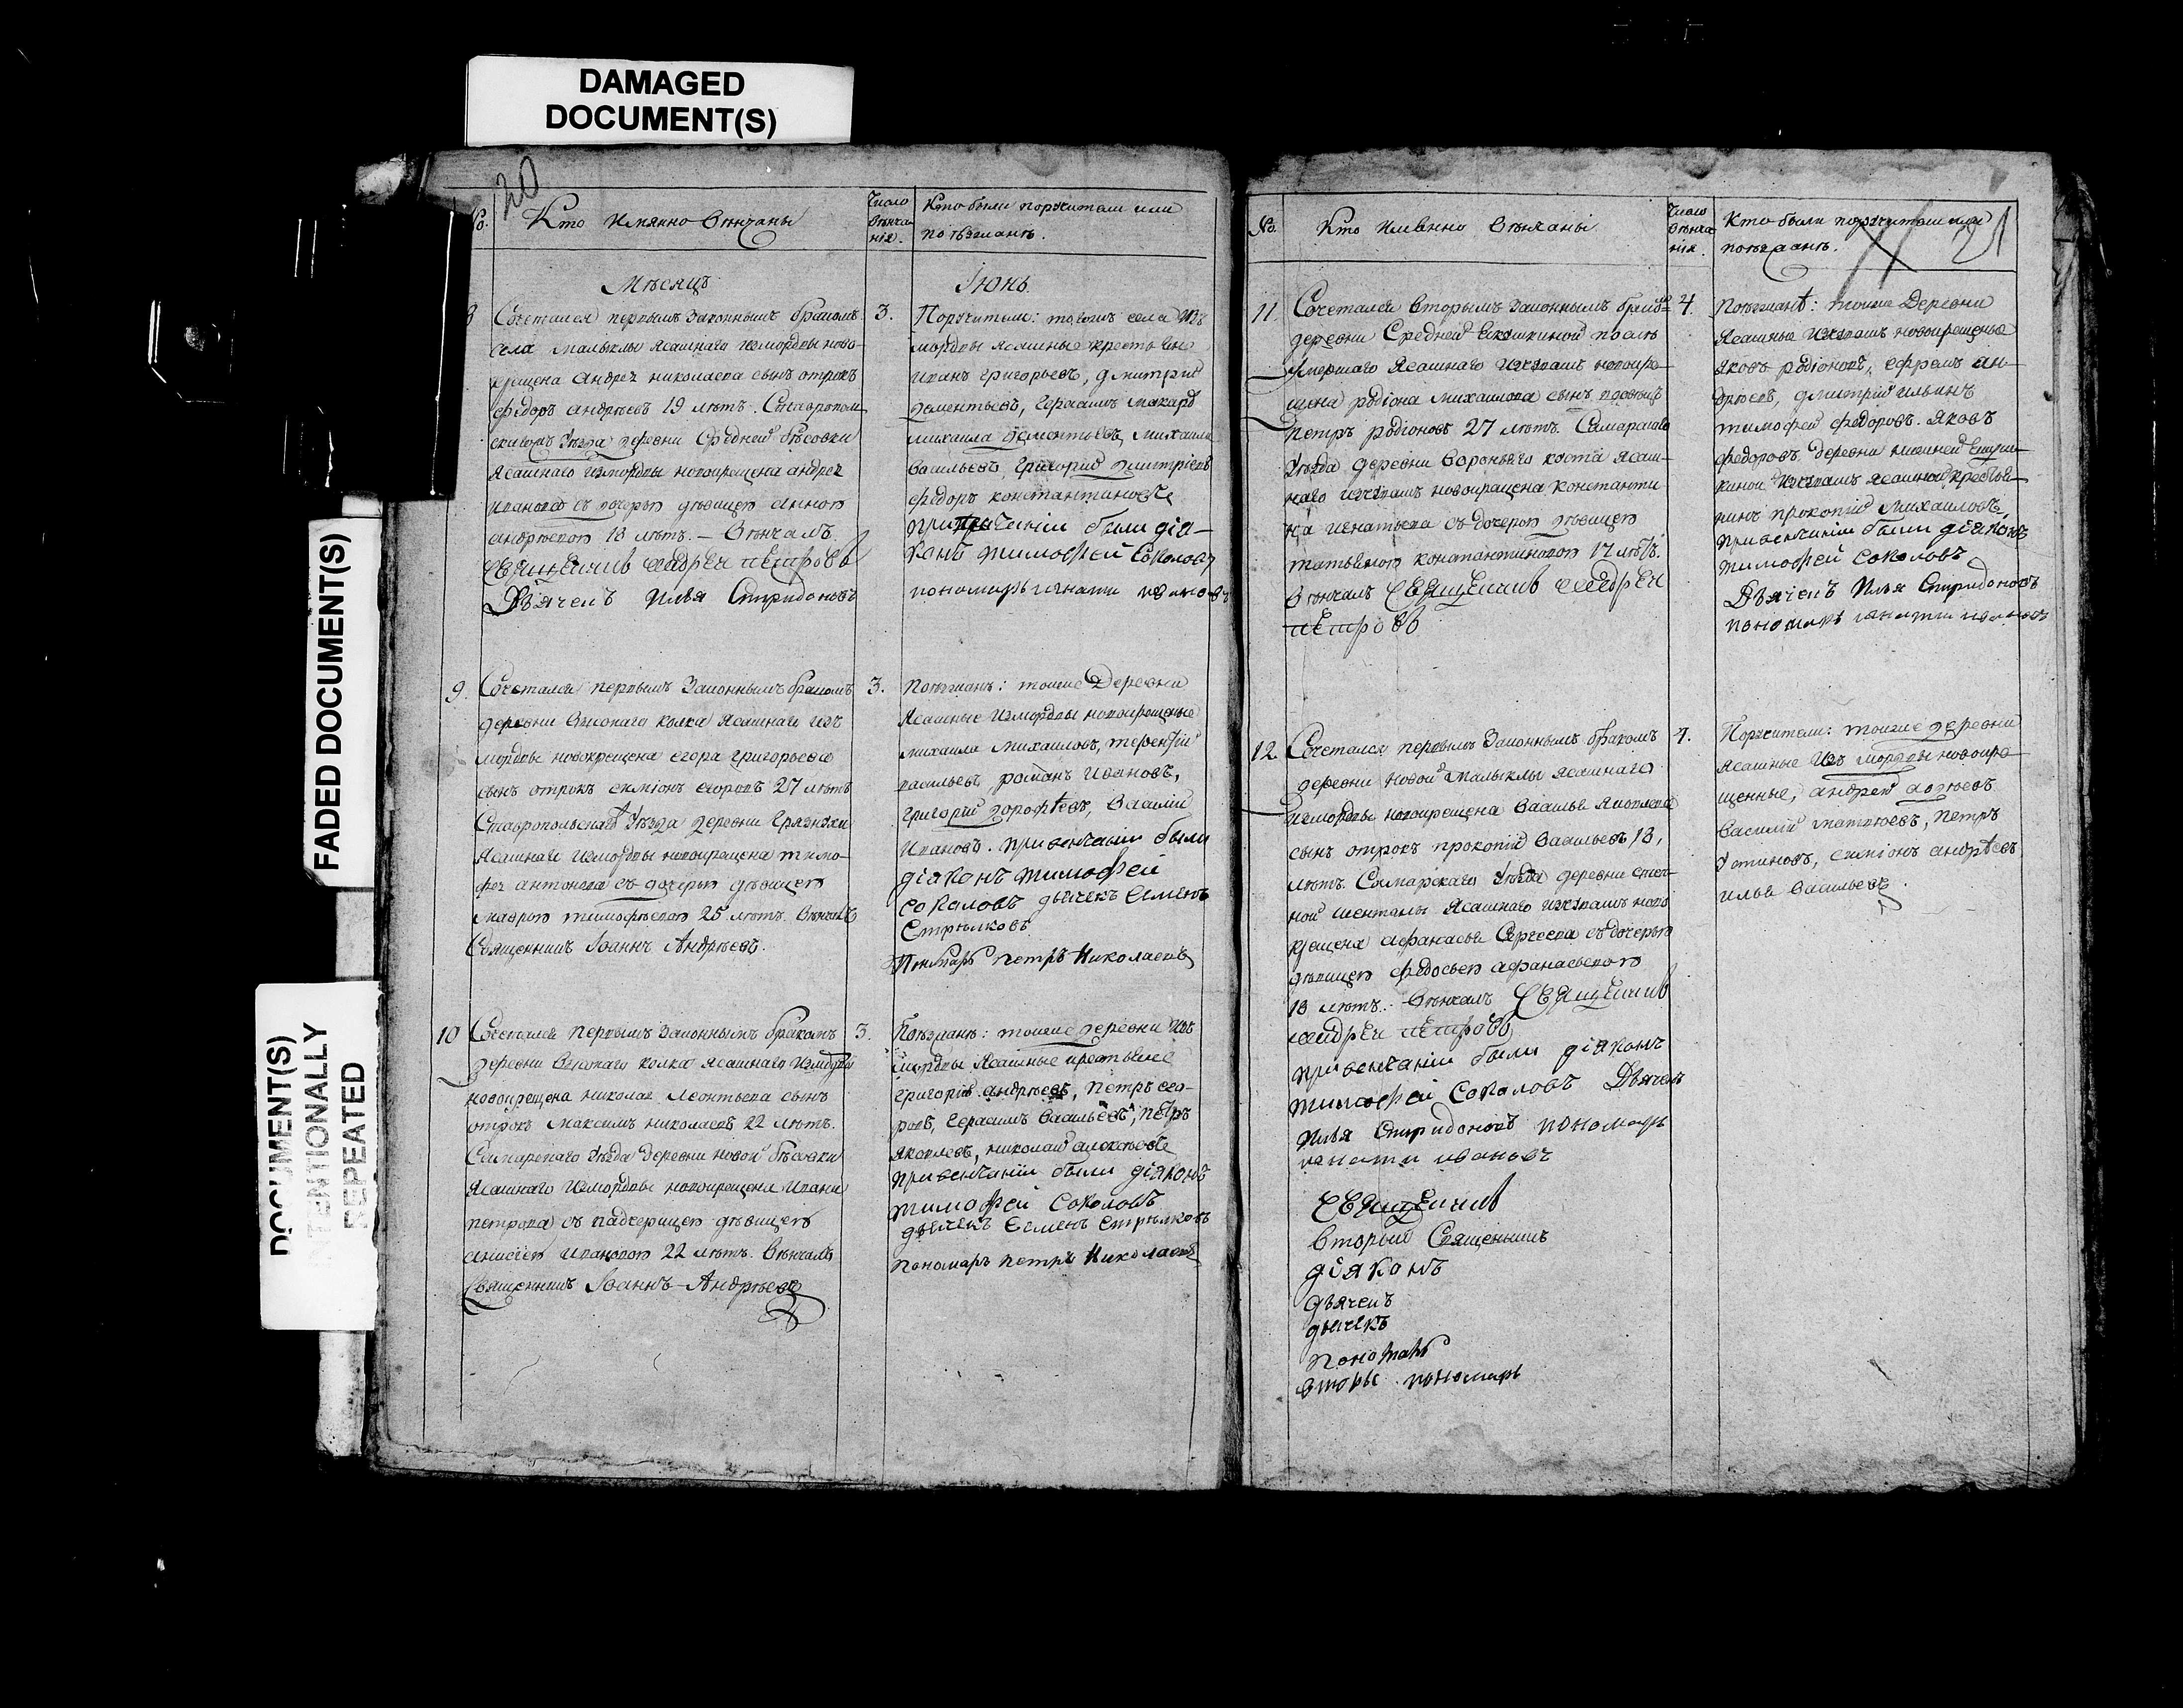 DAMAGED
DOCUMENT(S)
FADED DOCUMENT(S)
DOCUMENT(S)
INTENTIONALLY
REPEATED
20
№.
Кто имянно венчаны
Число
венча
нiя.
Кто были поручители или
поезжанъ.
Месяцъ
Iюнь.
8
Сочетался первымъ законнымъ бракомъ
села Малыклы ясашнаго измордвы ново-
крещена андрея николаева сынъ отрокъ
федоръ андреевъ 19 летъ. Ставрополь
скагожъ уезда деревни Средней бесовки
ясашнаго измордвы новокрещена андрея
иванова съ дочерью девицею анною
андреевою 18 летъ. — Венчалъ.
Священникъ андреи петровъ
Дьячекъ Илья Спиридоновъ
3.
Поручители: тогожъ села изъ
мордвы ясашные крестьяне
иванъ григорьевъ, дмитрий
дементьевъ, герасимъ макаровъ
михаила дементьевъ, михаила
васильевъ, григорий дмитрiевъ
федоръ константиновъ
были дiя-
конъ тимофей Соколовъ
пономарь игнати ивановъ
9.
Сочетался первымъ законнымъ бракомъ
деревни Высокаго колка ясашнаго изъ
мордвы новокрещена егора григорьева
сынъ отрокъ симiонъ егоровъ 27 летъ
Ставропольскагѣ уезда деревни грязнухи
ясашнаго измордвы новокрещена тимо-
фея антонова съ дочерью девицею
маврою тимофеевою 25 летъ. Венчалъ
Священникъ Iоаннъ Андреевъ.
3.
Поезжанъ: тоиже Деревни
ясашные измордвы новокрещеные
михаила михаиловъ, терентiй
васильевъ, романъ ивановъ,
григорiй дорофѣевъ, Василiи
ивановъ. привенчанiи были
дiяконъ тимофей
соколовъ дьячекъ Семенъ
Стрелковъ
Пономарь петръ Николаевъ
10
Сочетался первымъ законнымъ бракомъ
деревни Высокаго колка ясашнаго измордвы
новокрещена николая Леонтьева сынъ
отрокъ максимъ николаевъ 22 летъ.
Самарскаго уезда деревни новой бесовки
ясашнаго измордвы новокрещена ивана
петрова съ падчерицею девицею
анисiею ивановою 22 летъ. Венчалъ
Священникъ Iоаннъ Андреевъ
3.
Поезжанъ: тоиже деревни изъ
мордвы ясашные крестьяне
григорiй андреевъ, петръ его-
ровъ, герасимъ васильевъ, петръ
яковлевъ, николай алексеевъ
привенчанiи были дiяконъ
тимофей Соколовъ
дьячекъ Семенъ Стрелковъ
пономарь петръ Николаевъ
№.
Кто имянно венчаны
Число
венча
нiя.
Кто были поручители или
поезжанъ.
21
11.
Сочетался вторымъ законнымъ бракомъ
деревни Средней Якушкиной после
умершаго ясашнаго изчувашъ новокре-
щена родiона михаилова сынъ вдовецъ
петръ родiоновъ 27 летъ. Самарскаго
уезда деревни вороньяго куста ясаш-
наго изчувашъ новокрещена константи
на игнатьева съ дочерью девицею
татьяною константиновою 17 летъ.
Венчалъ Священникъ андреи
петровъ
4.
Поезжанѣ: тоиже Деревни
ясашные изчувашъ новокрещеные
яковъ родiоновъ, ефремъ ан-
дреевъ, дмитрий ильинъ
тимофей федоровъ. яковъ
федоровъ. деревни нижней Якуш-
киной изчувашъ ясашной крестья-
нинъ прокопiй михаиловъ,
привенчанiи были дiяконъ
тимофей соколовъ
Дьячекъ Илья Спиридоновъ
пономарь игнати ивановъ
12.
Сочетался первымъ законнымъ бракомъ
деревни новой малыклы ясашнаго
измордвы новокрещена Василья яковлева
сынъ отрокъ прокопiй васильевъ 18,
летъ. Самарскаго уезда деревни степ-
ной шенталы ясашнаго изчувашъ ново
крещена афанасья Сергеева съ дочерью
девицею федосьею афанасьевою
18 летъ. Венчалъ Священникъ
андреи петровъ
привенчанiи были дiяконъ
тимофей Соколовъ Дьячекъ
Илья Спиридоновъ пономарь
игнати ивановъ
4.
Поручители: тоиже деревни
ясашные изъ мордвы новокре-
щенные, андрей авдеевъ
василий матвеевъ, петръ
устиновъ, симiонъ андрѣевъ,
илья васильевъ.
Священникъ
Вторый Священникъ
дiяконъ
дьячекъ
дьячекъ
Пономарь
вторы пономарь